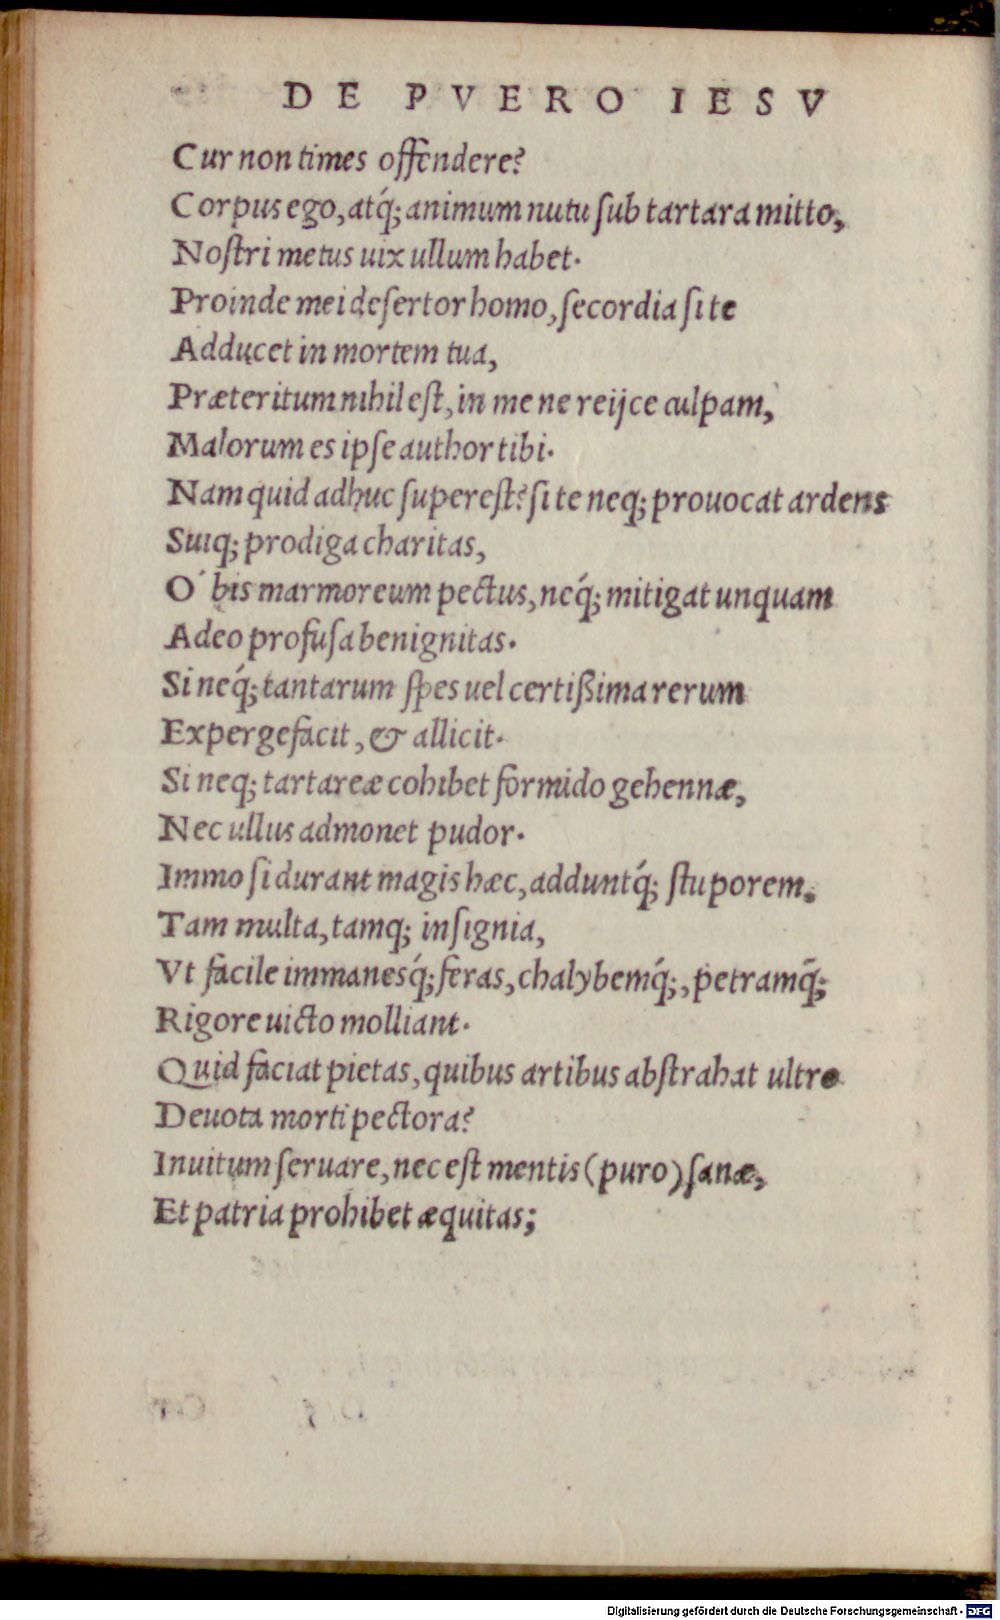 DE PVERO IESV
Cur non times offendere?
Corpus ego, atq́; animum nutu ſub tartara mitto,
Noſtri metus uix ullum habet.
Proinde mei deſertor homo, ſecordia ſi te
Adducet in mortem tua,
Præteritum nihil eſt, in me ne reijce culpam,
Malorum es ipſe author tibi.
Nam quid adhuc ſupereſt? ſi te neq; prouocat ardens
Suiq; prodiga charitas,
O' bis marmoreum pectus, neq́; mitigat unquam
Adeo profuſa benignitas.
Si neq́; tantarum ſpes uel certißima rerum
Expergefacit, & allicit.
Si neq; tartareæ cohibet formido gehennæ,
Nec ullus admonet pudor.
Immo ſi durant magis hæc, adduntq́; ſtuporem,
Tam multa, tamq; inſignia,
Vt facile immanesq́; feras, chalybemq́;, petramq̃;
Rigore uicto molliant.
Quid faciat pietas, quibus artibus abſtrahat ultro
Deuota morti pectora?
Inuitum ſeruare, nec eſt mentis (puro) ſanæ,
Et patria prohibet æquitas;
Digitalisierung gefördert durch die Deutsche Forschungsgemeinschaft - DFG